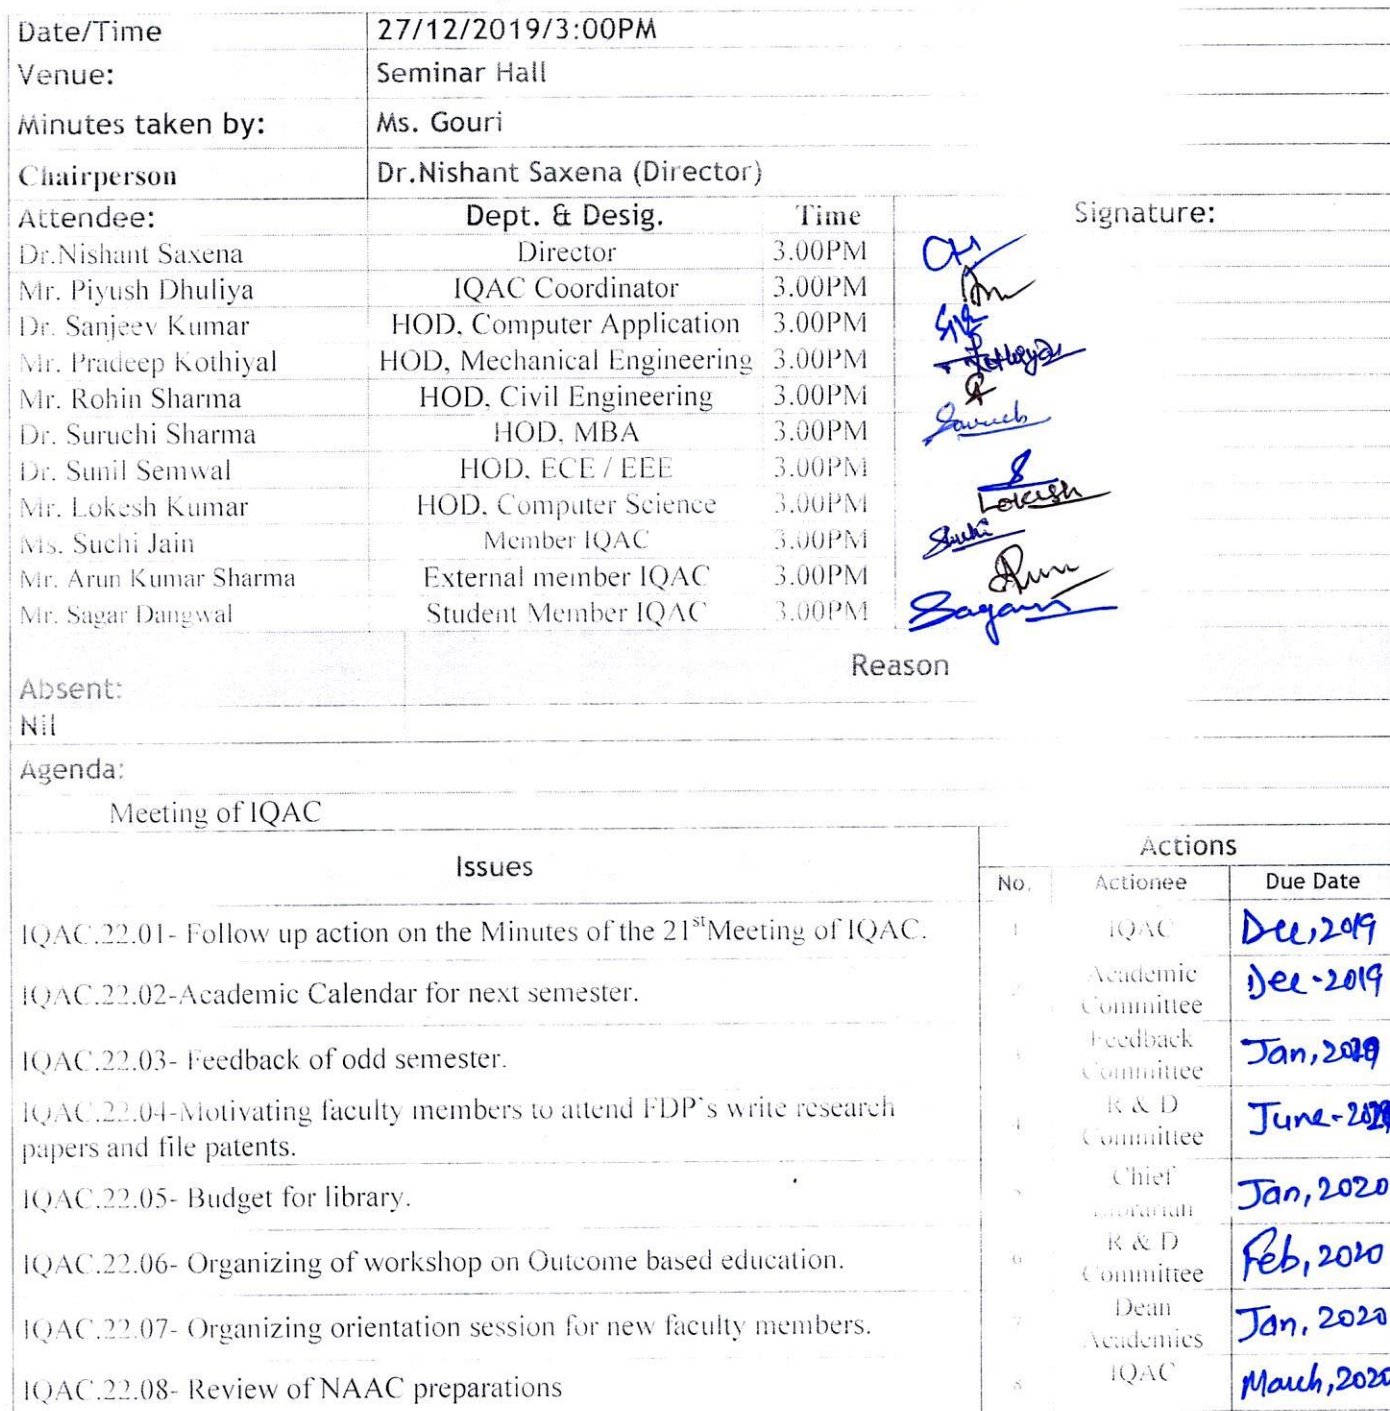 Date/Time 27/12/2019/3:00PM
Venue: Seminar Hall
Minutes taken by: Ms. Gouri
Chairperson Dr.Nishant Saxena (Director)
Attendee: Dept. & Desig. Time Signature:
Dr.Nishant Saxena Director 3.00PM
Mr. Piyush Dhuliya IQAC Coordinator 3.00PM
Dr. Sanjeev Kumar HOD, Computer Application 3.00PM
Mr. Pradeep Kothiyal HOD, Mechanical Engineering 3.00PM
Mr. Rohin Sharma HOD, Civil Engineering 3.00PM
Dr. Suruchi Sharma HOD, MBA 3.00PM
Dr. Sunil Semwal HOD, ECE / EEE 3.00PM
Mr. Lokesh Kumar HOD, Computer Science 3.00PM Lokesh
Ms. Suchi Jain Member IQAC 3.00PM
Mr. Arun Kumar Sharma External member IQAC 3.00PM Arun
Mr. Sagar Dangwal Student Member IQAC 3.00PM Sagar
Reason
Absent:
Nil
Agenda:
Meeting of IQAC
Issues Actions
No. Actionee Due Date
IQAC.22.01- Follow up action on the Minutes of the 21stMeeting of IQAC. 1 IQAC Dec,2019
IQAC.22.02-Academic Calendar for next semester. 2 Academic Committee Dec-2019
IQAC.22.03- Feedback of odd semester. 3 Feedback Committee Jan,
IQAC.22.04-Motivating faculty members to attend FDP`s write research
papers and file patents. 4 R & D Committee June-
IQAC.22.05- Budget for library. 5 Chief Librarian Jan,2020
IQAC.22.06- Organizing of workshop on Outcome based education. 6 R & D Committee Feb,2020
IQAC.22.07- Organizing orientation session for new faculty members. 7 Dean Academics Jan, 2020
IQAC.22.08- Review of NAAC preparations 8 IQAC March,2020